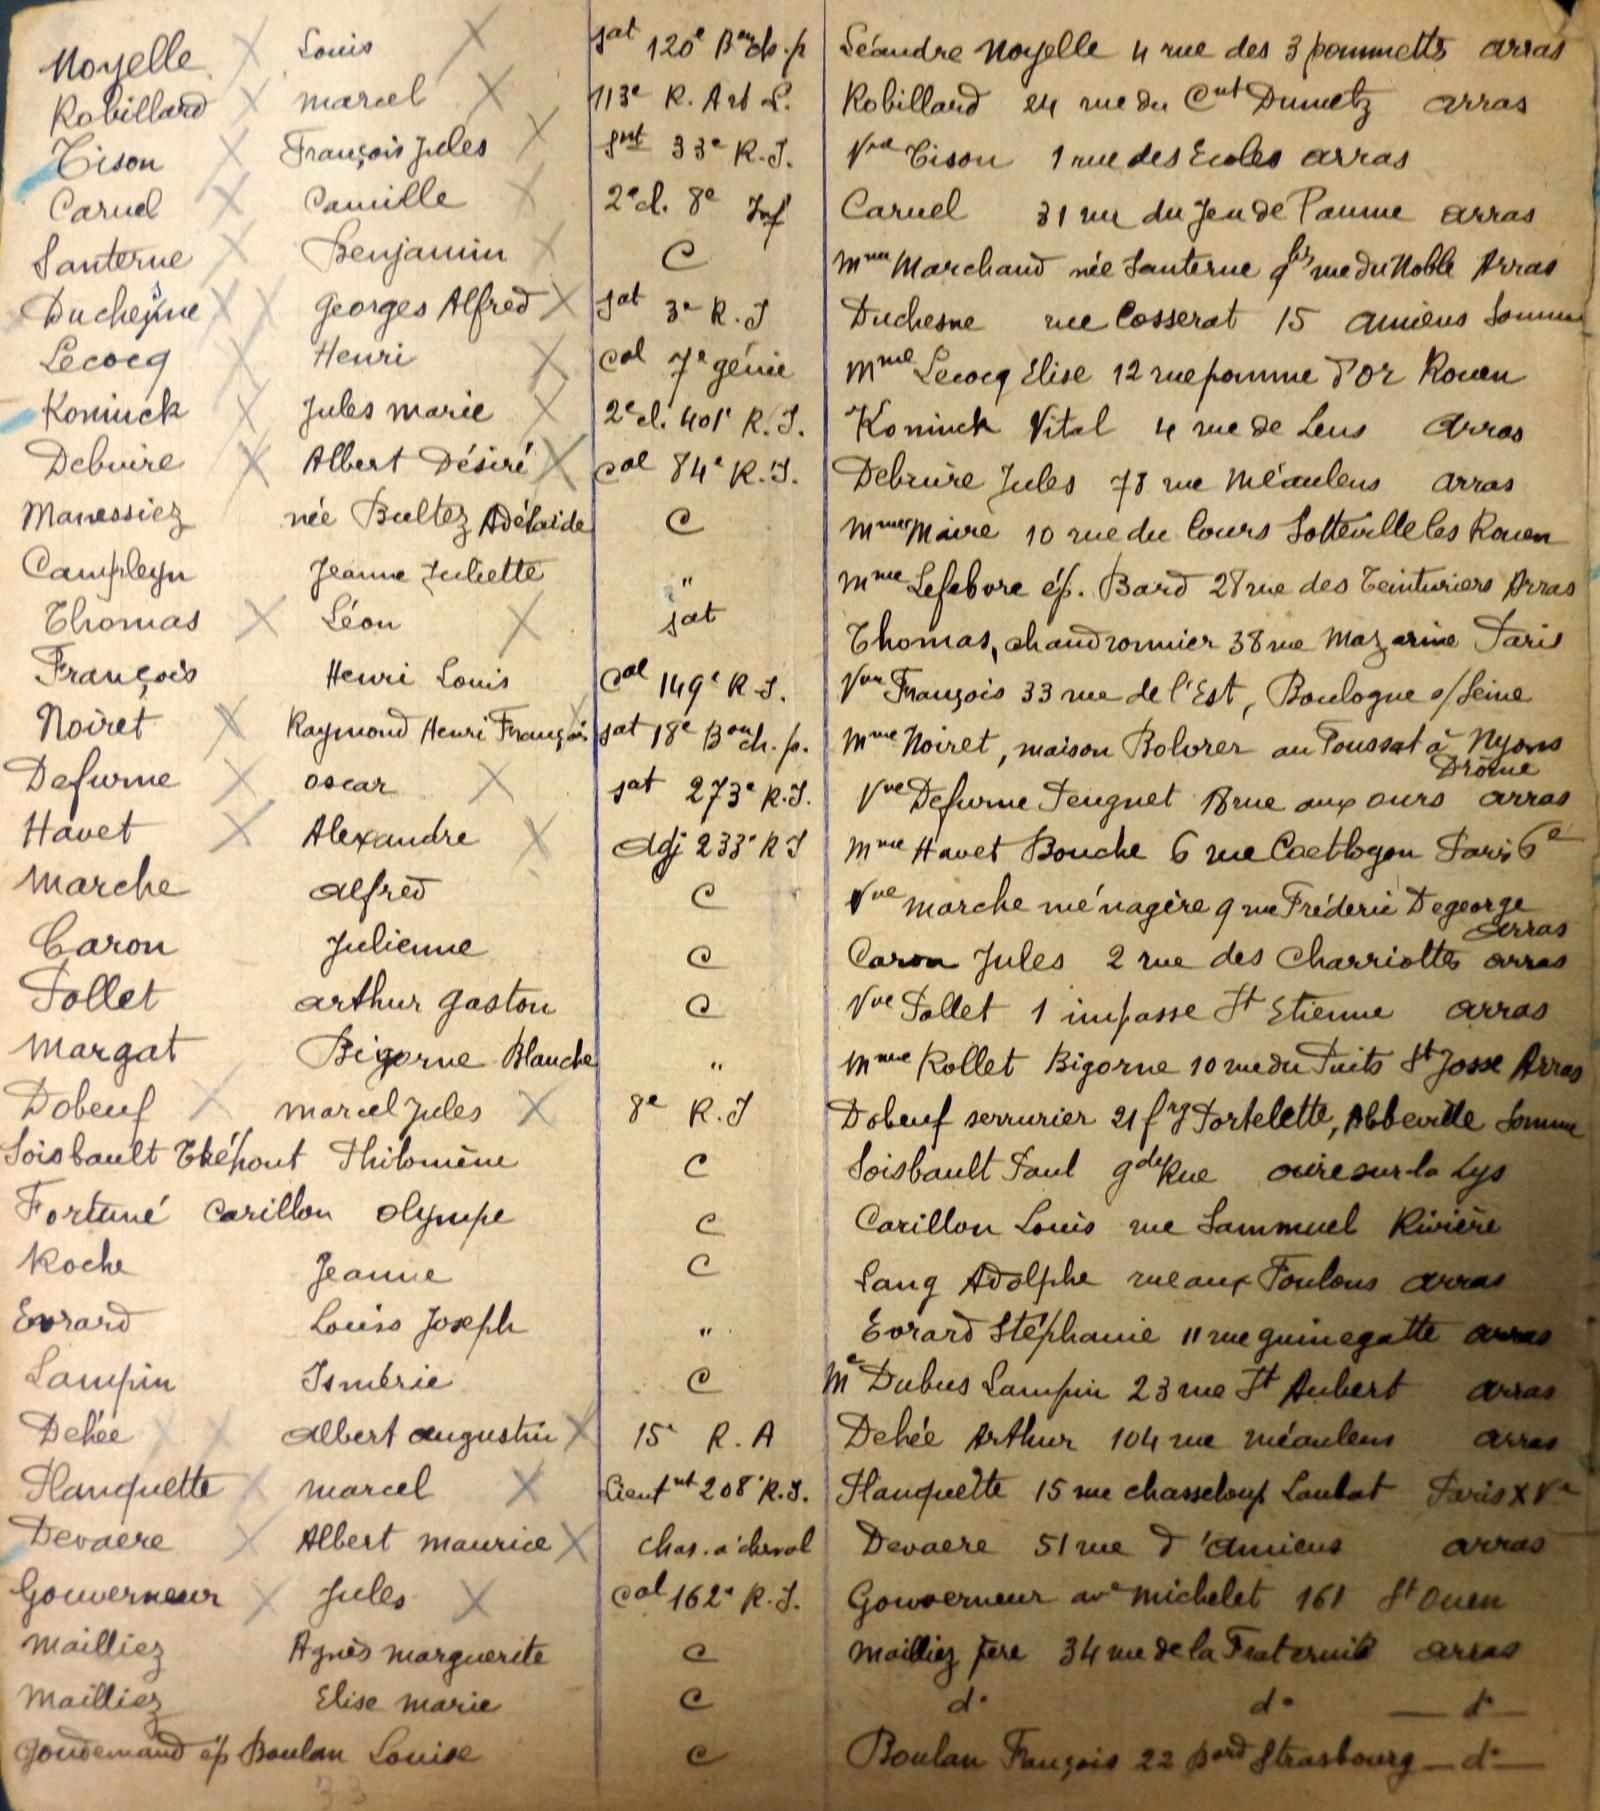 Noyelle X Louis X sat 120e Bon ch. p Léandre Noyelle 4 rue des 3 pommetts arras
Robillard X marcel X 113e R. Art L. Robillard 24 rue du Cnt Dumetz arras
Tison X François Jules X snt 33e R.I. Vve Tison 1 rue des Ecoles arras
Caruel X Camille X 2e cl. 8e Inf Caruel 31 rue du Jeu de Paume arras
Santerne X Benjamin X C Mme Marchand née Santerne 9 bis rue du Noble Arras
Duchesne X X georges Alfred X sat 3e R.I Duchesne rue Cosserat 15 amiens Somme
Lecocq X Henri X cal 7e génie Mme Lecocq Elise 12 rue pomme d'or Rouen
Koninck X Jules marie X 2e cl. 401e R.I. Koninck Vital 4 rue de Lens arras
Debuire X Albert Désiré X cal 84e R.I. Debuire Jules 78 rue Méaulens arras
Manessiez née Bultez Adélaide C Mme Maire 10 rue du Cours Sotteville les Rouen
Campleyn Jeanne Juliette " Mme Lefebvre ép. Bard 28 rue des Teinturiers Arras
Thomas X Léon X sat Thomas, chaudronnier 38 rue Mazarine Paris
François Henri Louis Cal 149e R.I. Vve François 33 rue de l'Est, Boulogne s/Seine
Noiret X Raymond Henri François X sat 18e Bon ch. p. Mme Noiret, maison au Poussat à Nyons
Drôme
Defurne X oscar X sat 273e R.I. Vve Defurne Peugnet 18 rue aux ours arras
Havet X Alexandre X adj 233e R I Mme Havet Bouche 6 rue Coetlogon Paris 6e
Marche alfred C Vve marche ménagère 9 rue Fréderic Degeorge
arras
Caron Julienne C Caron Jules 2 rue des Charriottes arras
Pollet arthur gaston C Vve Pollet 1 impasse St Etienne arras
Margat Bigorne Blanche " Mme Rollet Bigorne 10 rue du Puits St Josse Arras
Dobeuf X marcel Jules X 8e R.I Dobeuf serrurier 21 frg Portelette, Abbeville Somme
Soisbault Théhout Philomène C Soisbault Paul gde Rue aire sur la Lys
Fortuné Carillon olympe C Carillon Louis rue Sammuel Rivière
Roche Jeanne C Lang Adolphe rue aux Foulons arras
Evrard Louis Joseph " Evrard Stéphanie 11 rue guinegatte arras
Lampin Ismérie C Me Dubus Lampin 23 rue St Aubert arras
Dehée X X albert augustin X 15e R.A Dehée Arthur 104 rue méaulens arras
Planquette X marcel X Lieutnt 208e R.I. Planquette 15 rue chasseloup Laubat Paris XVe
Devaere X Albert maurice X chas. à cheval Devaere 51 rue d'amiens arras
Gouverneur X Jules X cal 162e R.I. Gouverneur ave Michelet 161 St Ouen
Mailliez Agnès marguerite C Mailliez père 34 rue de la Fraternité arras
Mailliez Elise marie C do do — do —
Goudemand ép Boulan Louise C Boulan François 22 bard Strasbourg — do —
33